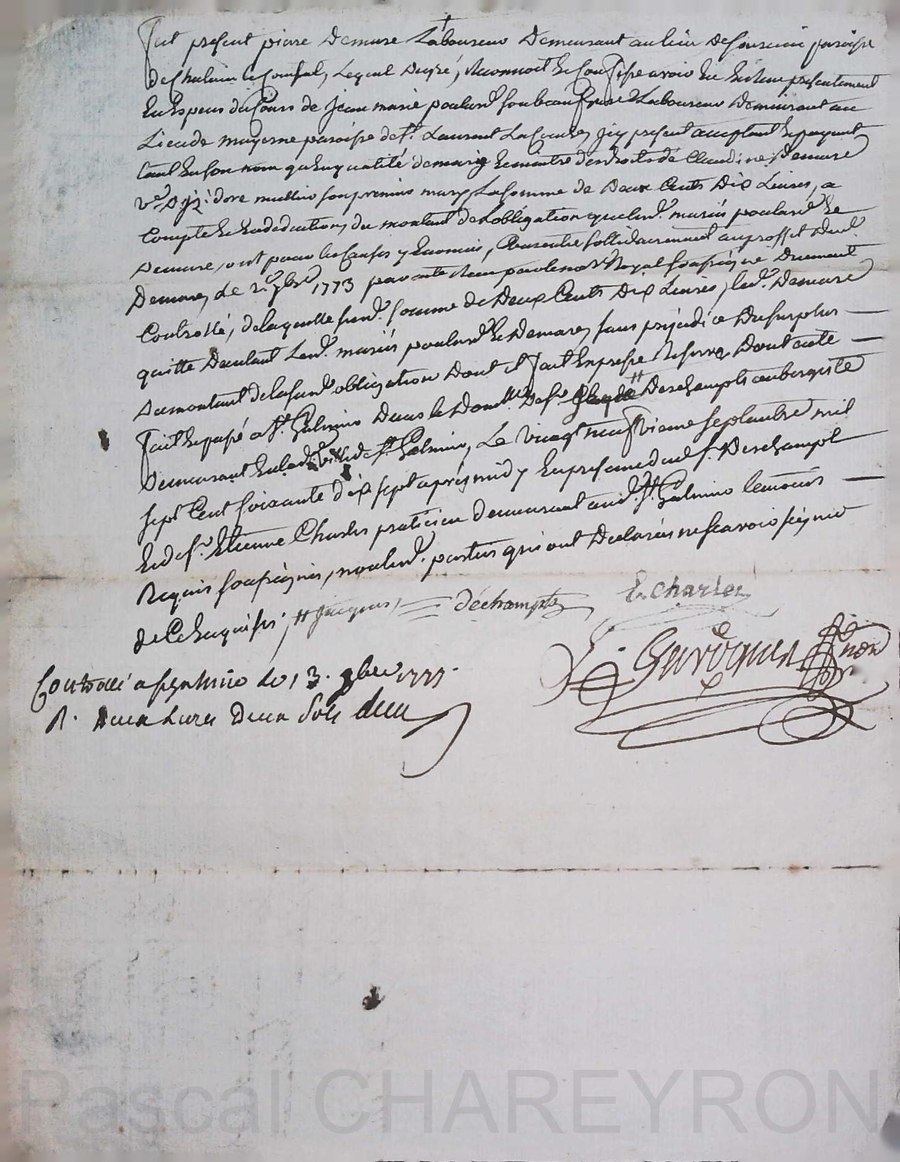 fut present pierre Demure Laboureur Demeurant au lieu de parroisse
de Chalain le Comtal, Lequel De gré, reconnoit & Confesse avoir Eu & Reçu presentement
En Especes du Cours de Jean marie poulard son beau frere Laboureur Demeurant au
Lieu de mayerne paroisse de St. Laurent La Conche, jcy present acceptant & payant
tant En son nom qu'En qualité de mary & maitre des droits de Claudine Demure
ve. D'jzidore mullin son premier mary, La somme de Deux Cents Dix Livres, a
Compte & En déduction du montant de L'obligation que les d. mariés poulard &
Demure, ont pour les Causes y Enoncés, Consentie sollidairement au proffit dud.
Demure, le 2 9bre 1773 par acte reçu par le no.re Royal soussigné Dument
Controllé, de laquelle sus d. somme de Deux Cents Dix Livres, led. Demure
quitte D'autant Les d. mariés poulard & Demure, sans préjudice Du surplus
Du montant de la sus d. obligation Dont il fait Expresse Reserve Dont acte
fait & passé a St. Galmier Dans le Dom.lle De sr. Jacques Deschampts aubergiste
Demeurant En lad. ville de St. Galmier, Le vingt neufvieme septembre mil
sept Cent soixante dix sept après midy En presence dud. sr. Deschampt
& de sr. Etienne Charles praticien demeurant aud. St. Galmier temoins
Requis soussignés, non les d. parties qui ont Declarés ne scavoir signer
de Ce Enquises, # Jacques, déchampts E. Charles
Controllé a St galmier le 13. 9bre 1777.
R. deux Livres Deux Sols
Pascal CHAREYRON